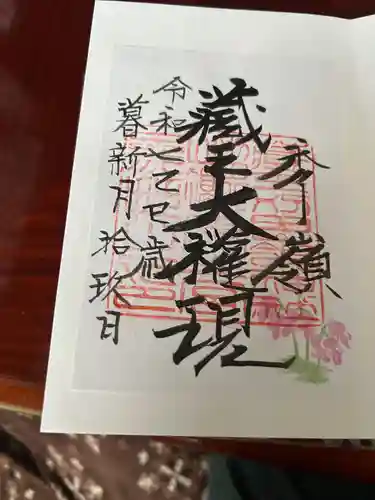 奉嶺
蔵王大権現
令和七乙巳歳
暮新月拾玖日